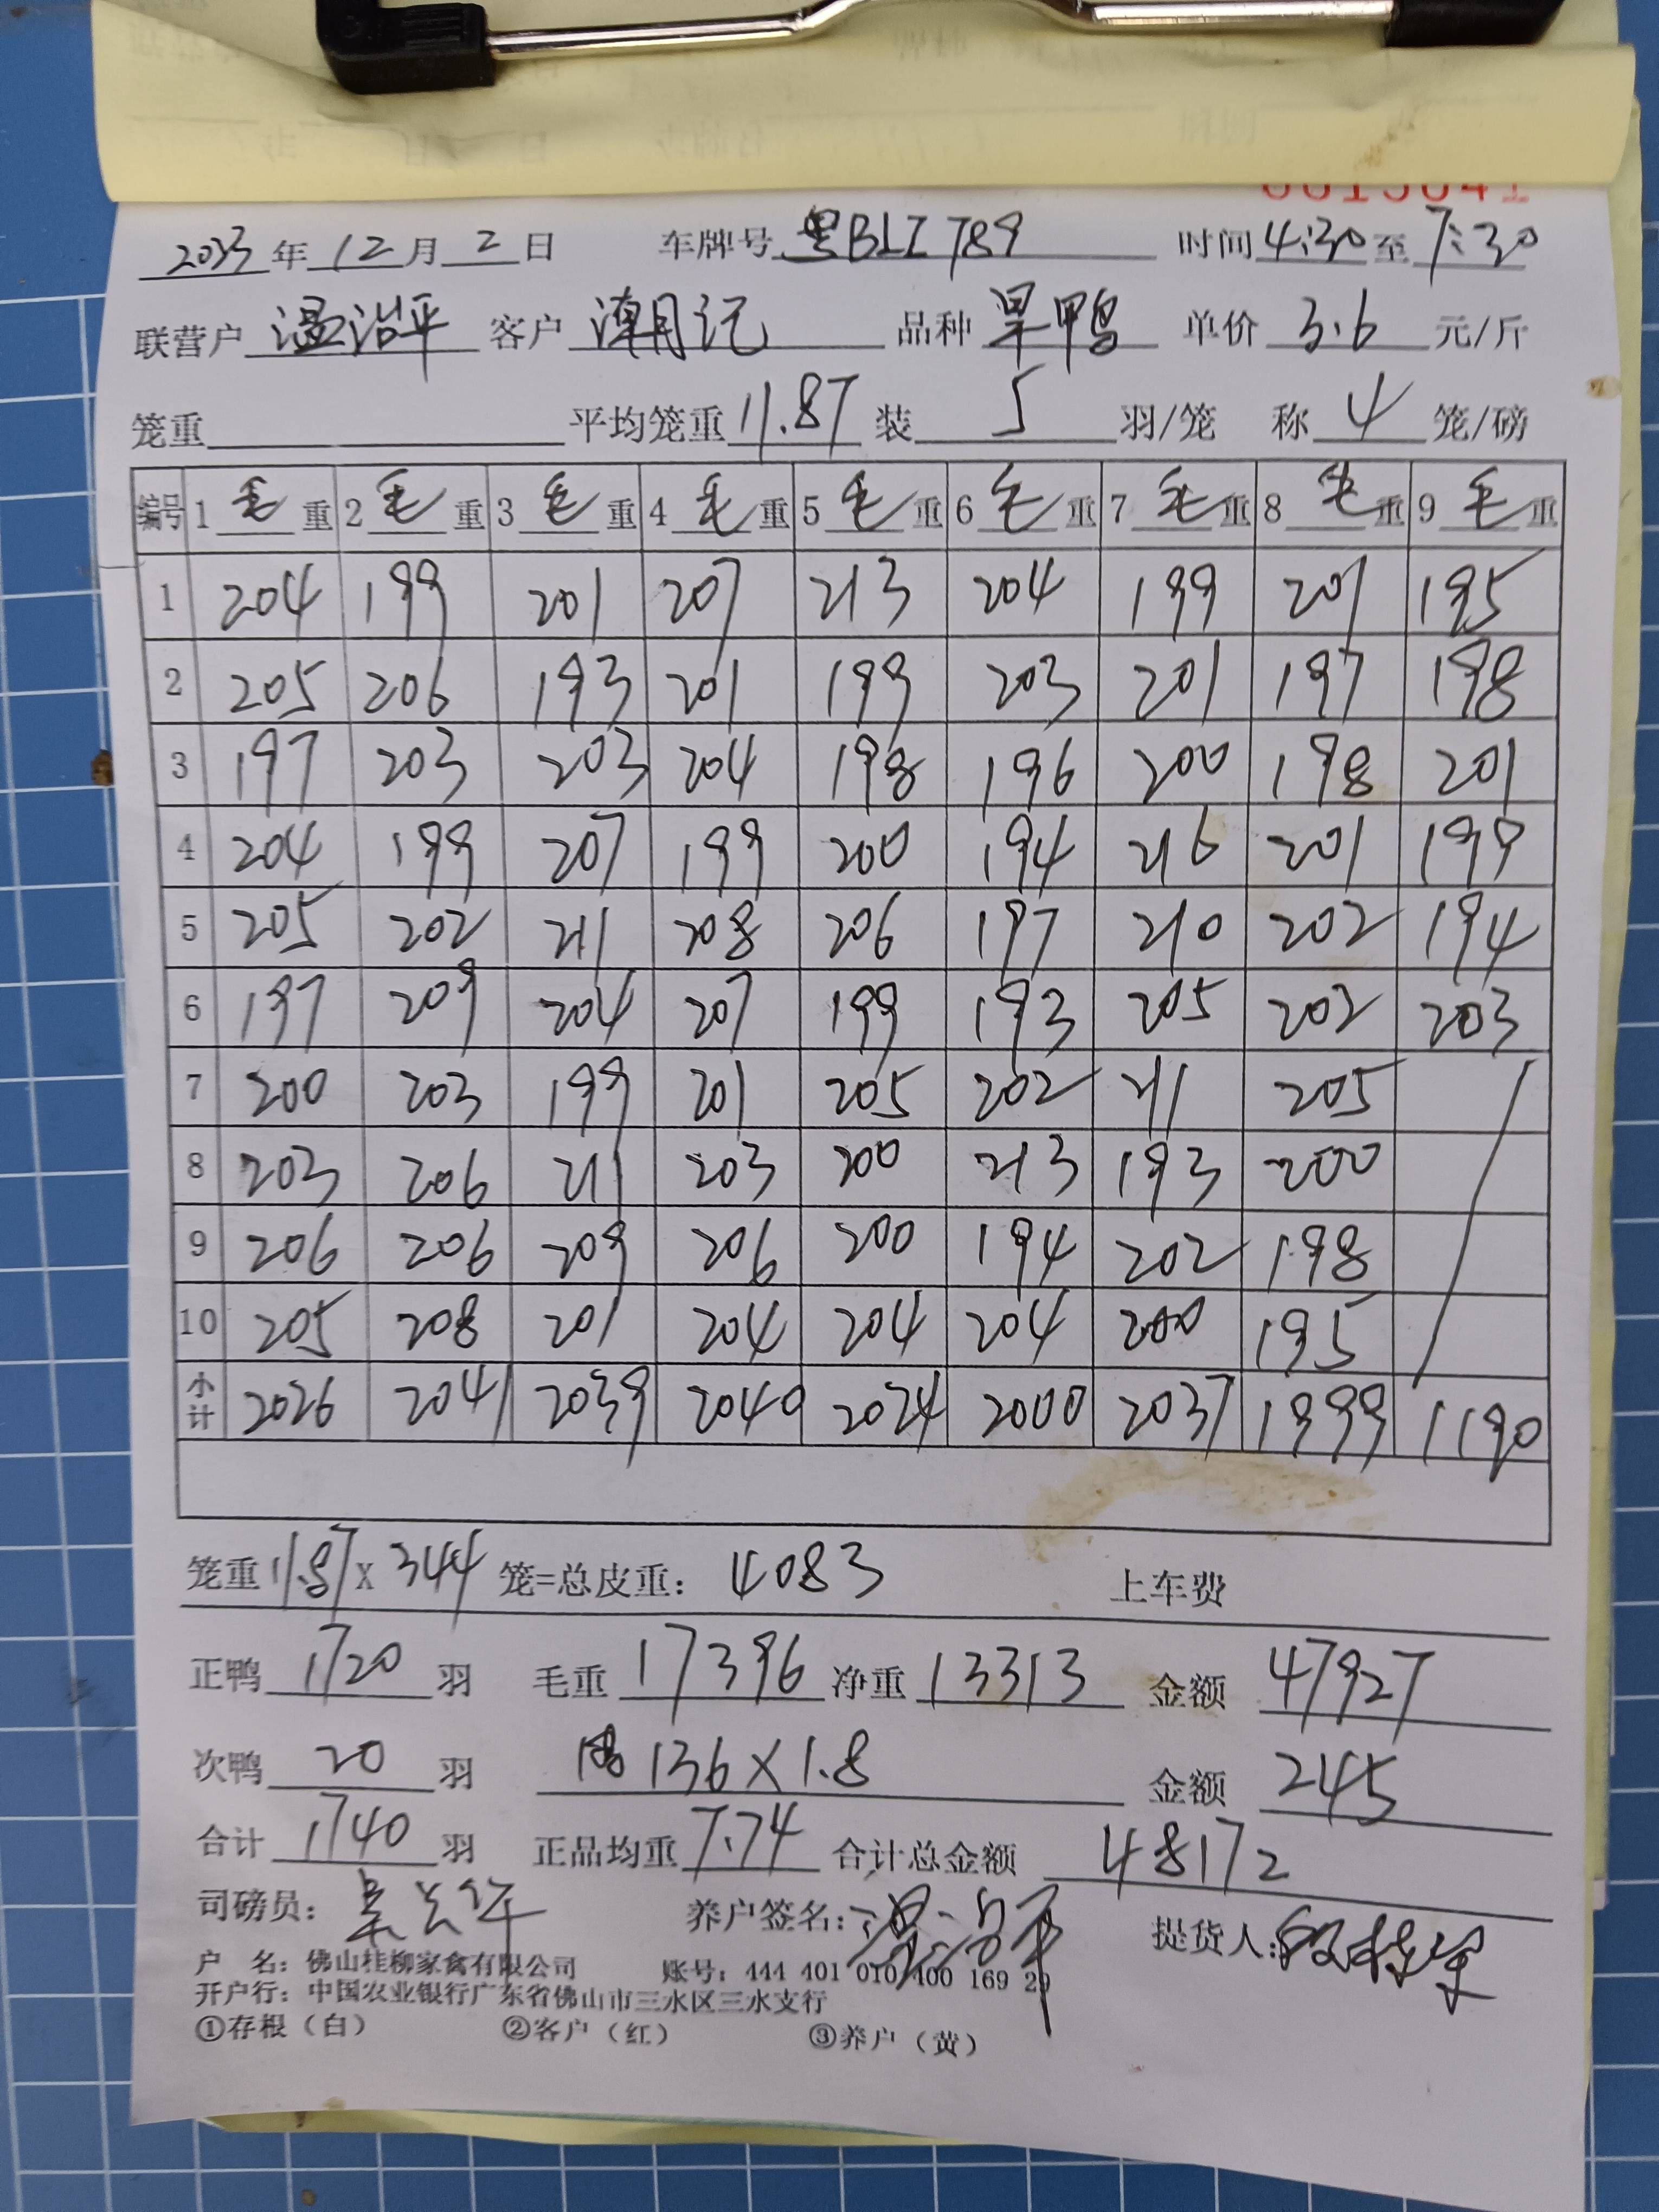 2023年12月2日 车牌号 粤BLZ789 时间4:30至7:30
联营户 温浩平 客户 潮记 品种 旱鸭 单价 3.6 元/斤
笼重 平均笼重 11.87 装 5 羽/笼 称 4 笼/磅
编号 1毛重 2毛重 3毛重 4毛重 5毛重 6毛重 7毛重 8毛重 9毛重
1 204 199 201 207 213 204 199 201 195
2 205 206 193 201 199 203 201 197 198
3 197 203 203 204 198 196 200 198 201
4 204 199 207 199 200 194 216 201 199
5 205 202 211 208 206 197 210 202 194
6 197 209 204 207 199 193 205 202 203
7 200 203 199 201 205 202 211 205
8 203 206 211 203 200 213 193 200
9 206 206 209 206 200 194 202 198
10 205 208 201 204 204 204 200 195
小计 2026 2041 2039 2040 2024 2000 2037 1999 1190
笼重 11.87 X 344 笼=总皮重: 4083 上车费
正鸭 1720 羽 毛重 17396 净重 13313 金额 47927
次鸭 20 羽 136 X 1.8 金额 245
合计 1740 羽 正品均重 7.74 合计总金额 48172
司磅员: 养户签名: 提货人:
户 名: 佛山桂柳家禽有限公司 账号: 444 401 010 400 169 29
开户行: 中国农业银行广东省佛山市三水区三水支行
①存根（白） ②客户（红） ③养户（黄）